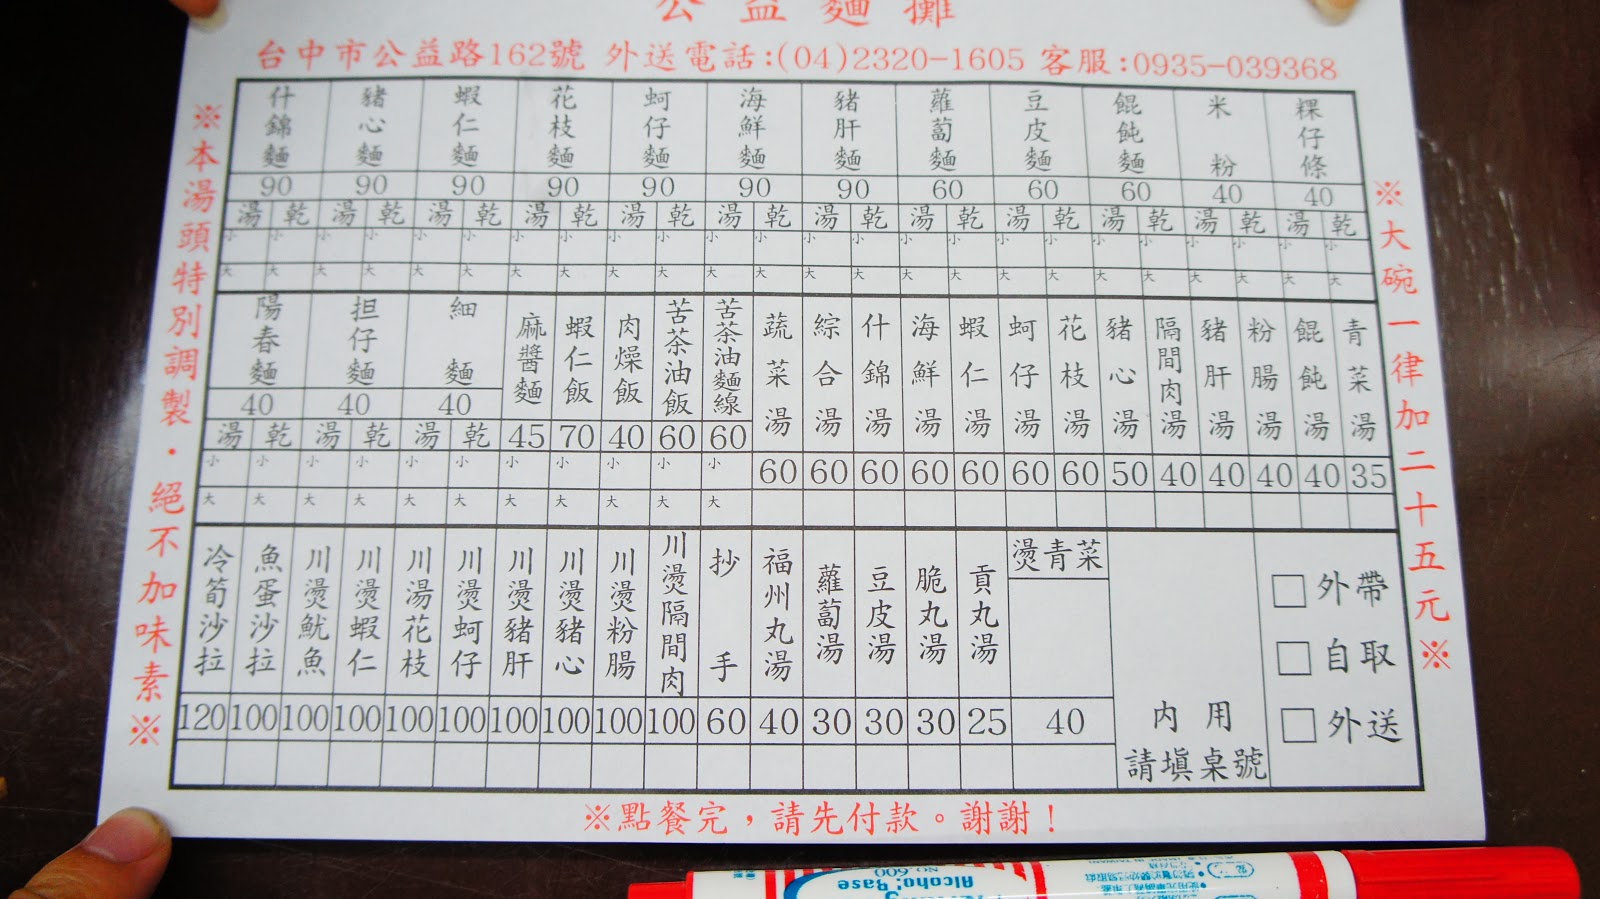 公益麵攤
台中市公益路162號 外送電話:(04)2320-1605 客服:0935-039368
※本湯頭特別調製．絕不加味素※
什錦麵 豬心麵 蝦仁麵 花枝麵 蚵仔麵 海鮮麵 豬肝麵 蘿蔔麵 豆皮麵 餛飩麵 米粉 粿仔條
90 90 90 90 90 90 90 60 60 60 40 40
湯 乾 湯 乾 湯 乾 湯 乾 湯 乾 湯 乾 湯 乾 湯 乾 湯 乾 湯 乾 湯 乾 湯 乾
小 小 小 小 小 小 小 小 小 小 小 小 小 小 小 小 小 小 小 小 小 小 小 小
大 大 大 大 大 大 大 大 大 大 大 大 大 大 大 大 大 大 大 大 大 大 大 大
陽春麵 担仔麵 細麵 麻醬麵 蝦仁飯 肉燥飯 苦茶油飯 苦茶油麵線 蔬菜湯 綜合湯 什錦湯 海鮮湯 蝦仁湯 蚵仔湯 花枝湯 豬心湯 隔間肉湯 豬肝湯 粉腸湯 餛飩湯 青菜湯
40 40 40
湯 乾 湯 乾 湯 乾 45 70 40 60 60
60 60 60 60 60 60 60 50 40 40 40 40 35
小 小 小 小 小 小 小 小 小 小 小
大 大 大 大 大 大 大 大 大 大 大
冷筍沙拉 魚蛋沙拉 川燙魷魚 川燙蝦仁 川湯花枝 川燙蚵仔 川燙豬肝 川燙豬心 川燙粉腸 川燙隔間肉 抄手 福州丸湯 蘿蔔湯 豆皮湯 脆丸湯 貢丸湯 燙青菜
120 100 100 100 100 100 100 100 100 100 60 40 30 30 30 25 40
內用
請填桌號
□外帶
□自取
□外送
※大碗一律加二十五元※
※點餐完，請先付款。謝謝！
NO.600
Alcohol Base